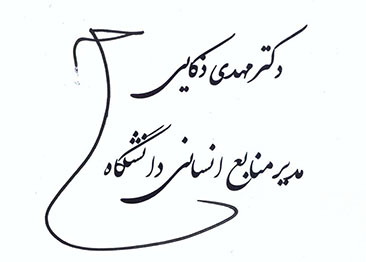 دکتر مهدی ذکایی
مدیر منابع انسانی دانشگاه